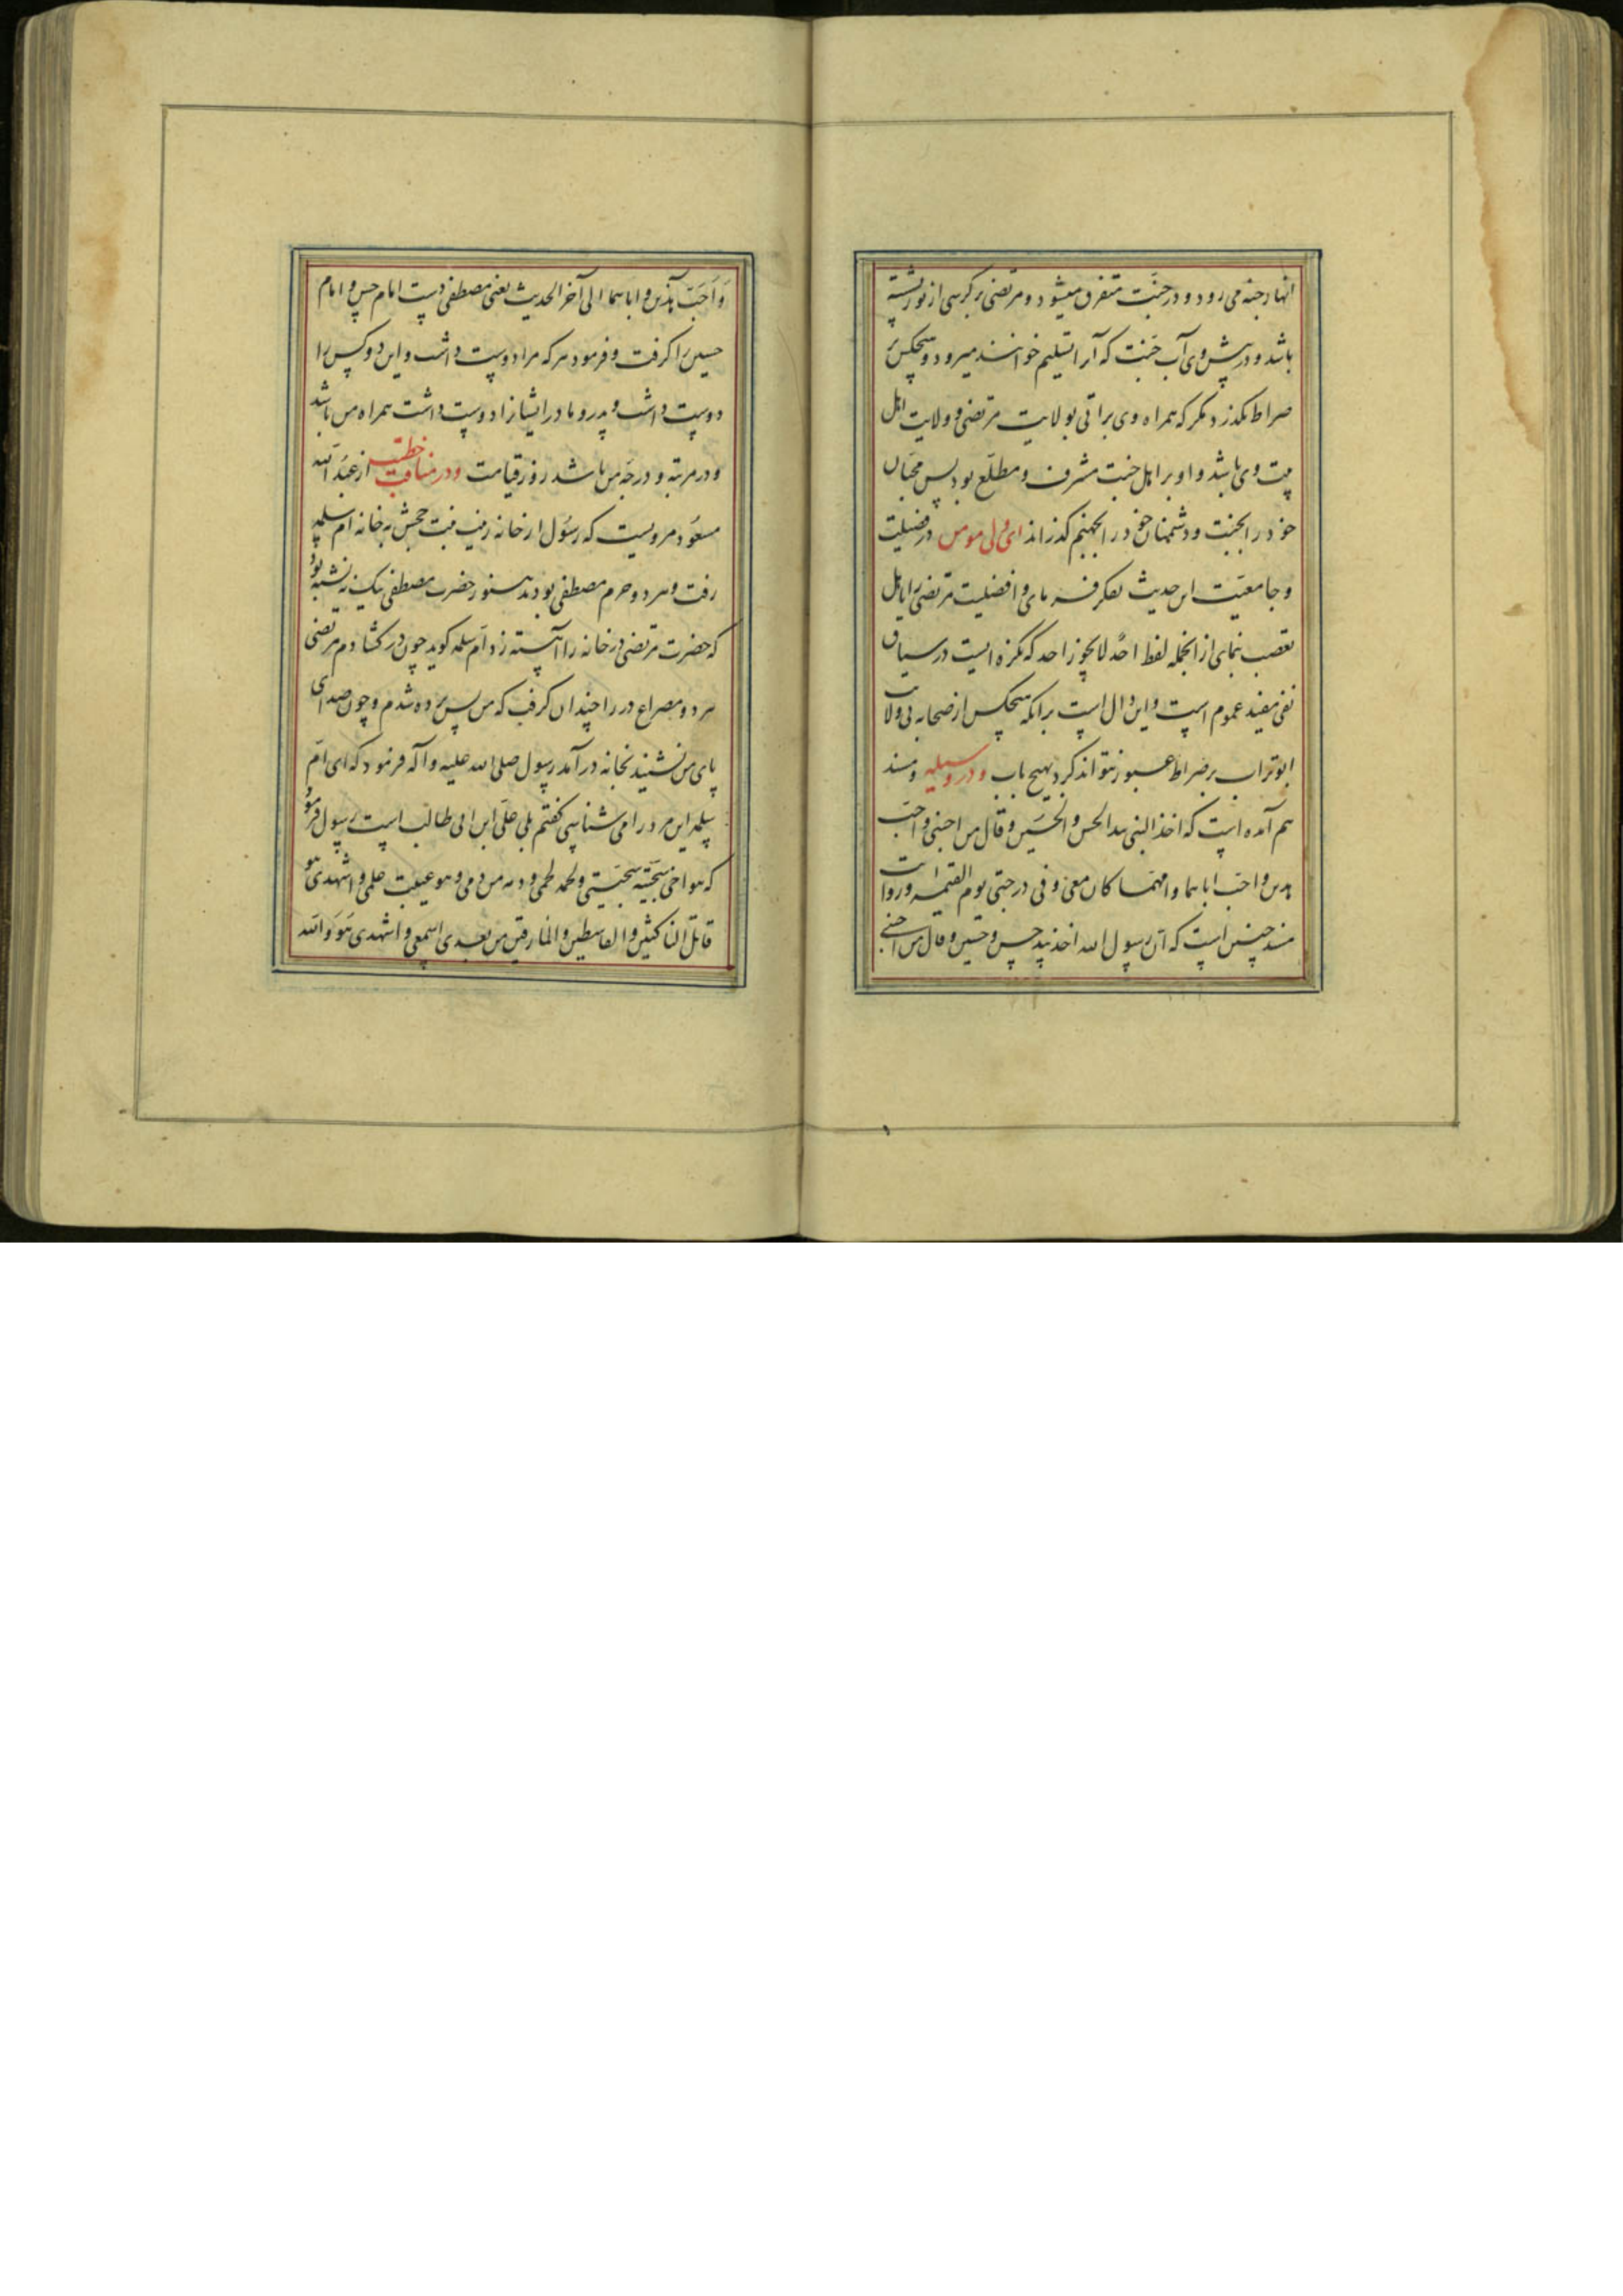 انهار جنه می رود و در جنت متفرق میشود و مرتضی بر کرسی از نور نشسته
باشد و در پیش وی آب جنت که آنرا تسلیم خوانند میرود و هیچکس بر
صراط نگذرد مگر که همراه وی براتی بولایت مرتضی و ولایت اهل
بیت وی باشد و او بر اهل جنت مشرف و مطلع بود پس محبان
خود را بجنت و دشمنان خود را بجهنم گذراند ای ولی مومن در فضیلت
و جامعیت این حدیث تفکر فرمای و افضلیت مرتضی را با اهل
تعصب بنمای از انجمله لفظ احد لا یجوز احد که نکره ایست در سیاق
نفی مفید عموم است و این دال است برانکه هیچکس از صحابه بی ولای
ابو تراب بر صراط عبور نتواند کرد بهیچ باب و در وسیله و مسند
هم آمده است که اخذ النبی بید الحسن و الحسین و قال من احبنی و احب
هذین و احب اباهما و امهما کان معی و فی درجتی یوم القیمه و روایت
مسند چنین است که ان رسول الله اخذ بید حسن و حسین و قال من احبنی
و احب هذین و اباهما الی آخر الحدیث یعنی مصطفی دست امام حسن و امام
حسین را گرفت و فرمود هر که مرا دوست داشت و این دو کس را
دوست داشت و پدر و مادر ایشانرا دوست داشت همراه من باشد
و در مرتبه و درجه من باشد روز قیامت و در مناقب خطیب از عبد الله
مسعود مرویست که رسول از خانه زینب بنت جحش به خانه ام سلمه
رفت و هر دو حرم مصطفی بودند هنوز حضرت مصطفی نیک ننشسته بود
که حضرت مرتضی در خانه را آهسته زد ام سلمه گوید چون در گشادم مرتضی
هر دو مصراع در را چندان گرفت که من پس پرده شدم و چون صدای
پای من نشنید بخانه درآمد رسول صلی الله علیه و آله فرمود که ای ام
سلمه این مرد را می شناسی گفتم بلی علی ابن ابی طالب است رسول فرمود
که هو اخی سجیته سجیتی و لحمه لحمی و دمه من دمی و هو عیبت علمی و اشهدی هو
قاتل الناکثین و القاسطین و المارقین من بعدی اسمعی و اشهدی هو و الله